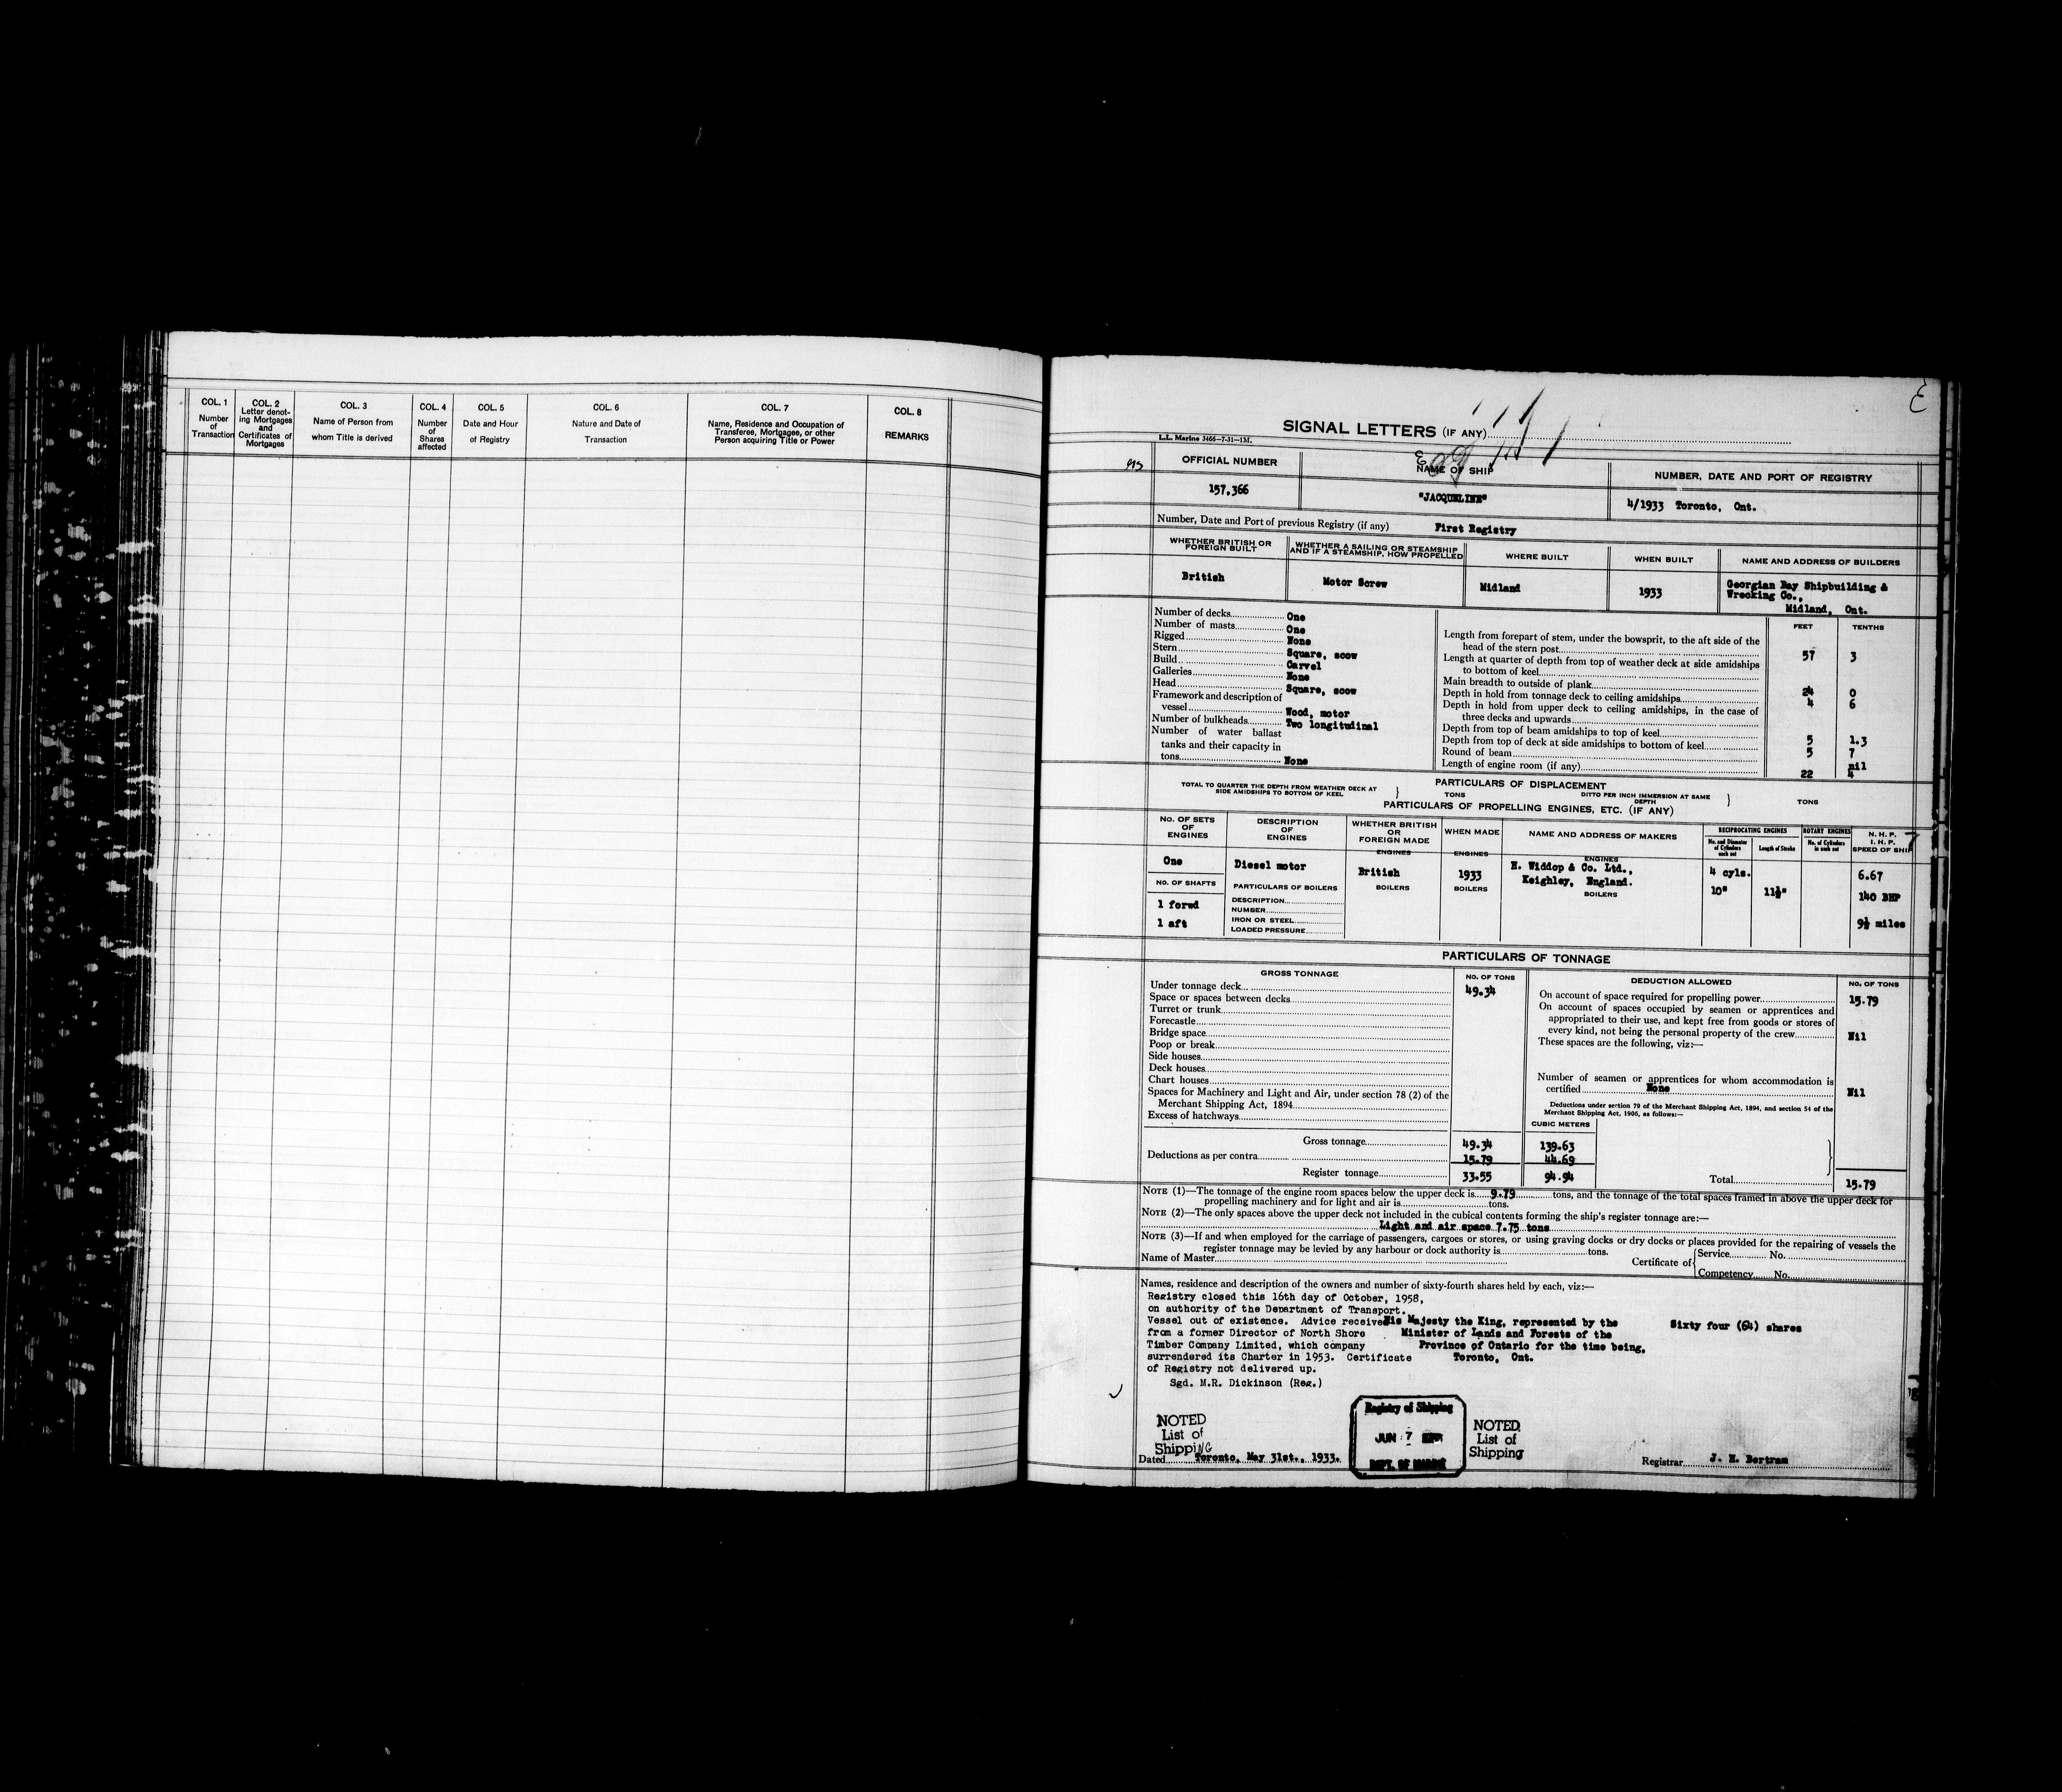 COL. 1
Number
of
Transaction
COL. 2
Letter denot-
ing Mortgages
and
Certificates of
Mortgages
COL. 3
Name of Person from
whom Title is derived
COL. 4
Number
of
Shares
affected
COL. 5
Date and Hour
of Registry
COL. 6
Nature and Date of
Transaction
COL. 7
Name, Residence and Occupation of
Transferee, Mortgagee, or other
Person acquiring Title or Power
COL. 8
REMARKS
SIGNAL LETTERS (IF ANY)
L.L. Marine 3466—7-31—1M.
OFFICIAL NUMBER
NAME OF SHIP
NUMBER, DATE AND PORT OF REGISTRY
157,366
"JACQUELINE"
4/1933 Toronto, Ont.
Number, Date and Port of previous Registry (if any) First Registry
WHETHER BRITISH OR
FOREIGN BUILT
WHETHER A SAILING OR STEAMSHIP
AND IF A STEAMSHIP, HOW PROPELLED
WHERE BUILT
WHEN BUILT
NAME AND ADDRESS OF BUILDERS
British
Motor Screw
Midland
1933
Georgian Bay Shipbuilding &
Wrecking Co.,
Midland, Ont.
Number of decks One
Number of masts One
Rigged None
Stern Square, scow
Build Carvel
Galleries None
Head Square, scow
Framework and description of
vessel Wood, motor
Number of bulkheads Two longitudinal
Number of water ballast
tanks and their capacity in
tons None
FEET TENTHS
Length from forepart of stem, under the bowsprit, to the aft side of the
head of the stern post 57 3
Length at quarter of depth from top of weather deck at side amidships
to bottom of keel
Main breadth to outside of plank 24 0
Depth in hold from tonnage deck to ceiling amidships 4 6
Depth in hold from upper deck to ceiling amidships, in the case of
three decks and upwards
Depth from top of beam amidships to top of keel 5 1.3
Depth from top of deck at side amidships to bottom of keel 5 7
Round of beam nil
Length of engine room (if any) 22 4
PARTICULARS OF DISPLACEMENT
TOTAL TO QUARTER THE DEPTH FROM WEATHER DECK AT
SIDE AMIDSHIPS TO BOTTOM OF KEEL
TONS
DITTO PER INCH IMMERSION AT SAME
DEPTH
TONS
PARTICULARS OF PROPELLING ENGINES, ETC. (IF ANY)
NO. OF SETS
OF
ENGINES
DESCRIPTION
OF
ENGINES
WHETHER BRITISH
OR
FOREIGN MADE
WHEN MADE
NAME AND ADDRESS OF MAKERS
RECIPROCATING ENGINES
No. and Diameter
of Cylinders
each set
Length of Stroke
ROTARY ENGINES
No. of Cylinders
in each set
N. H. P.
I. H. P.
SPEED OF SHIP
ENGINES
ENGINES
ENGINES
One
Diesel motor
British
1933
H. Widdop & Co. Ltd.,
Keighley, England.
4 cyls.
10"
11½"
6.67
140 BHP
9½ miles
NO. OF SHAFTS
PARTICULARS OF BOILERS
BOILERS
BOILERS
BOILERS
1 forwd
1 aft
DESCRIPTION
NUMBER
IRON OR STEEL
LOADED PRESSURE
PARTICULARS OF TONNAGE
GROSS TONNAGE
NO. OF TONS
Under tonnage deck 49.34
Space or spaces between decks
Turret or trunk
Forecastle
Bridge space
Poop or break
Side houses
Deck houses
Chart houses
Spaces for Machinery and Light and Air, under section 78 (2) of the
Merchant Shipping Act, 1894
Excess of hatchways
Gross tonnage 49.34 139.63
Deductions as per contra 15.79 44.69
Register tonnage 33.55 94.94
DEDUCTION ALLOWED
NO. OF TONS
On account of space required for propelling power 15.79
On account of spaces occupied by seamen or apprentices and
appropriated to their use, and kept free from goods or stores of
every kind, not being the personal property of the crew Nil
These spaces are the following, viz:—
Number of seamen or apprentices for whom accommodation is
certified None Nil
Deductions under section 79 of the Merchant Shipping Act, 1894, and section 54 of the
Merchant Shipping Act, 1906, as follows:—
CUBIC METERS
Total 15.79
NOTE (1)—The tonnage of the engine room spaces below the upper deck is 9.79 tons, and the tonnage of the total spaces framed in above the upper deck for
propelling machinery and for light and air is tons.
NOTE (2)—The only spaces above the upper deck not included in the cubical contents forming the ship's register tonnage are:—
Light and air space 7.75 tons
NOTE (3)—If and when employed for the carriage of passengers, cargoes or stores, or using graving docks or dry docks or places provided for the repairing of vessels the
register tonnage may be levied by any harbour or dock authority is tons.
Name of Master
Certificate of
Service No.
Competency No.
Names, residence and description of the owners and number of sixty-fourth shares held by each, viz:—
Registry closed this 16th day of October, 1958,
on authority of the Department of Transport.
Vessel out of existence. Advice received
from a former Director of North Shore
Timber Company Limited, which company
surrendered its Charter in 1953. Certificate
of Registry not delivered up.
Sgd. M.R. Dickinson (Reg.)
His Majesty the King, represented by the
Minister of Lands and Forests of the
Province of Ontario for the time being,
Toronto, Ont.
Sixty four (64) shares
NOTED
List of
Shipping
Registry of Shipping
JUN 7
DEPT. OF MARINE
NOTED
List of
Shipping
Dated Toronto, May 31st., 1933.
Registrar J. H. Bertram